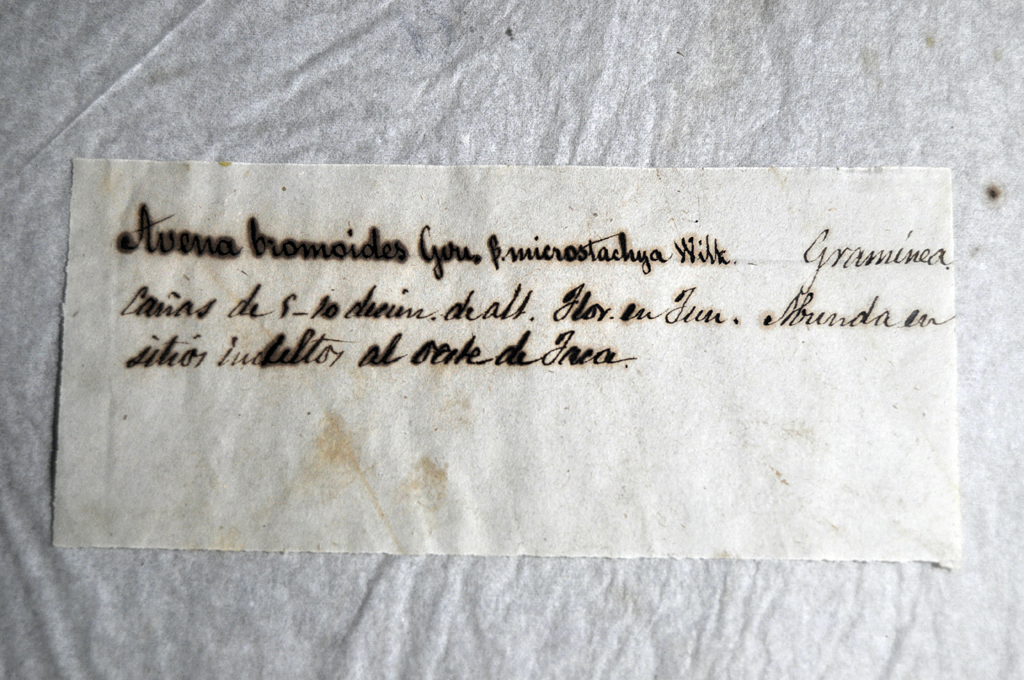 Avena bromoides Gou. β. microstachya Willk. Gramínea.
Cañas de 5-10 decim. de alt. Flor. en Jun. Abunda en
sitios incultos al oeste de Jaca.